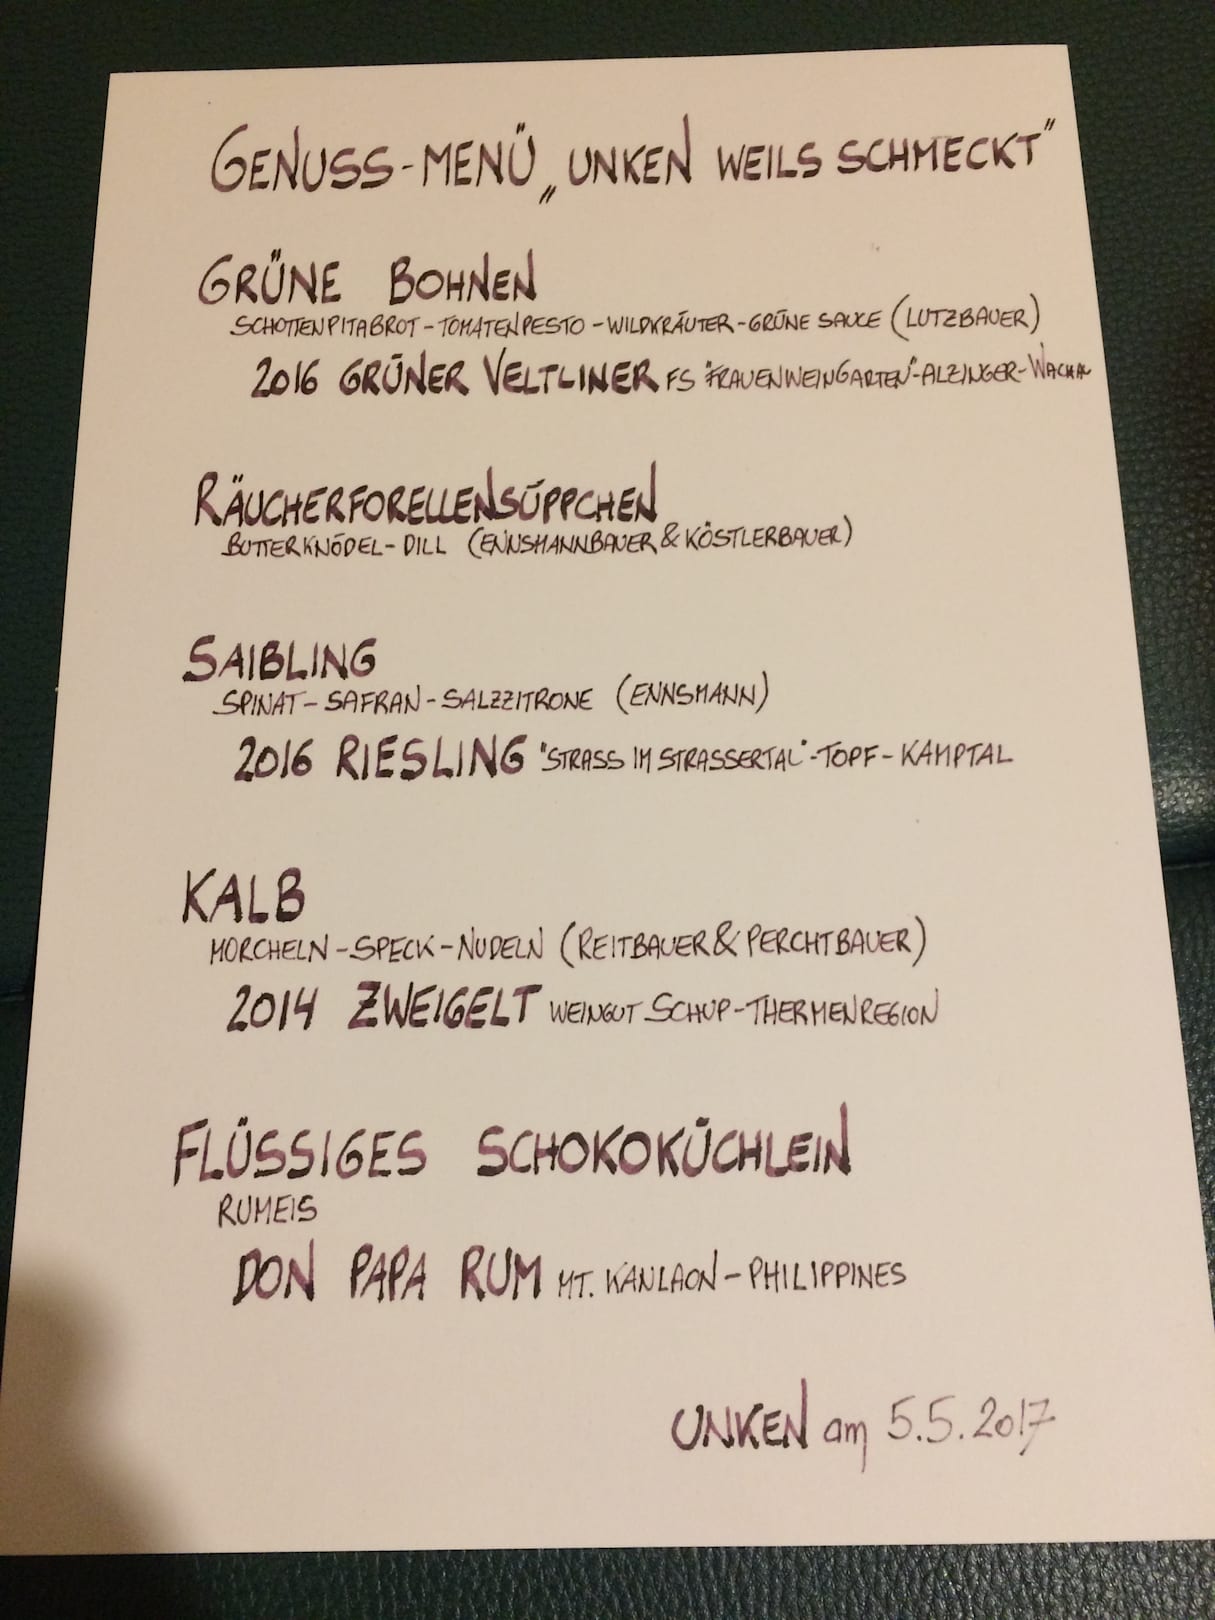 GENUSS-MENÜ „UNKEN WEILS SCHMECKT"
GRÜNE BOHNEN
SCHOTTENPITABROT-TOMATENPESTO-WILDKRÄUTER-GRÜNE SAUCE (LUTZBAUER)
2016 GRÜNER VELTLINER FS "FRAUENWEINGARTEN"-ALZINGER-WACHAU
RÄUCHERFORELLENSÜPPCHEN
BUTTERKNÖDEL-DILL (ENNSMANNBAUER & KÖSTLERBAUER)
SAIBLING
SPINAT-SAFRAN-SALZZITRONE (ENNSMANN)
2016 RIESLING "STRASS IM STRASSERTAL"-TOPF-KAMPTAL
KALB
MORCHELN-SPECK-NUDELN (REITBAUER & PERCHTBAUER)
2014 ZWEIGELT WEINGUT SCHUP-THERMENREGION
FLÜSSIGES SCHOKOKÜCHLEIN
RUMEIS
DON PAPA RUM MT. KANLAON-PHILIPPINES
UNKEN am 5.5.2017